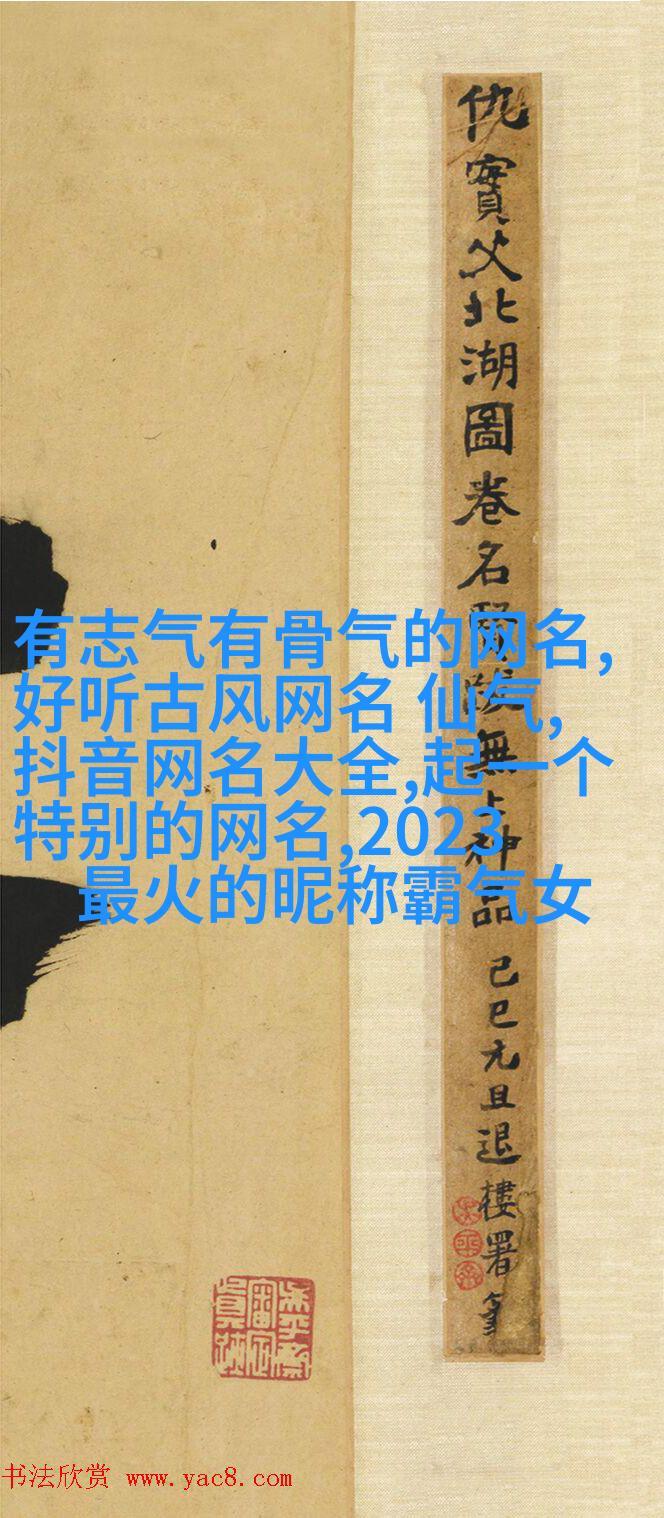 仇實父北湖圖卷名
無上神品
己巳元旦退樓署
有志气有骨气的网名,
好听古风网名 仙气,
抖音网名大全,起一个
特别的网名,2023
最火的昵称霸气女
书法欣赏 www.yac8.com